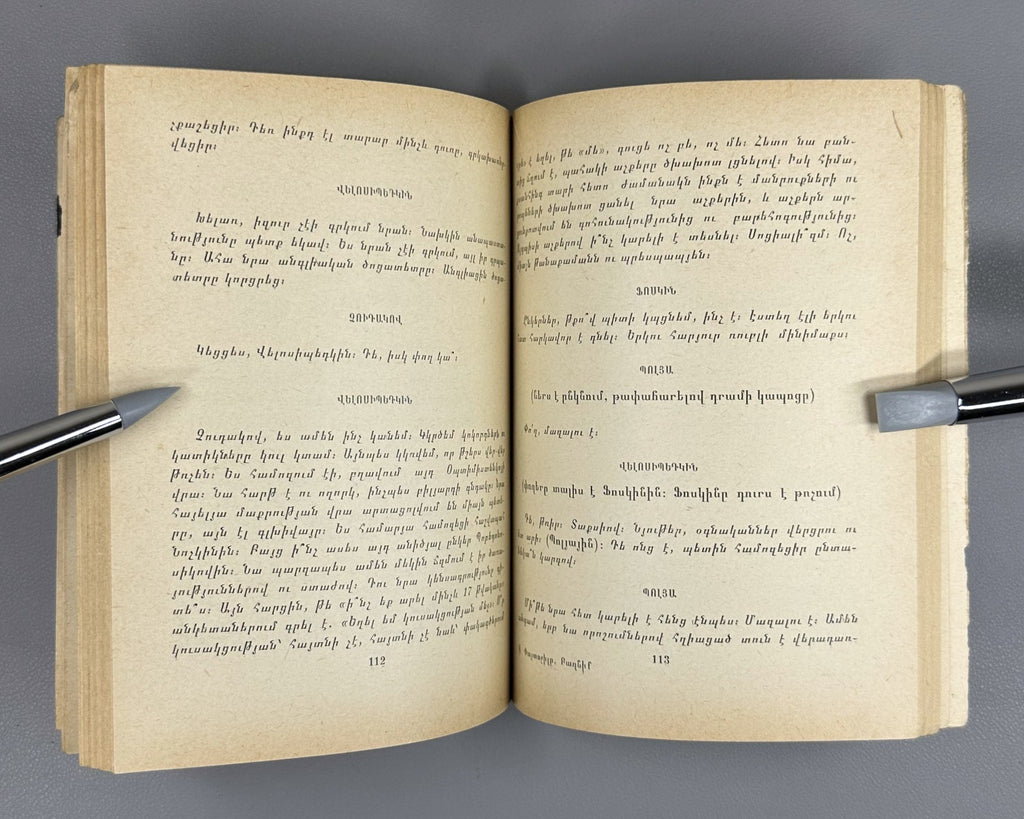 չքաշեցիր։ Դեռ ինքդ էլ տարար մինչև դուռը, գրկախառն-
վեցիր։
ՎԵԼՈՍԻՊԵԴԿԻՆ
Խելառ, իզուր չէի գրկում նրան։ Նախկին անապաստա-
նությունը պետք եկավ։ Ես նրան չէի գրկում, այլ իր գրպա-
նը։ Ահա նրա անգլիական ծոցատետրը։ Անգլիացին ծոցա-
տետրը կորցրեց։
ՉՈՒԴԱԿՈՎ
Կեցցես, Վելոսիպեդկին։ Դե, իսկ փող կա՞։
ՎԵԼՈՍԻՊԵԴԿԻՆ
Չուդակով, ես ամեն ինչ կանեմ։ Կկրծեմ կոկորդներն ու
կատիկները կուլ կտամ։ Այնպես կկռվեմ, որ թշերս վեր-վեր
թռչեն։ Ես համոզում էի, բղավում այդ Օպտիմիստենկոյի
վրա։ Նա հարթ է ու ողորկ, ինչպես բիլյարդի գնդակը։ Նրա
հայելյա մաքրության վրա արտացոլվում են միայն պետե-
րը, այն էլ գլխիվայր։ Ես համարյա համոզեցի հաշվապահ
Նոչկինին։ Բայց ի՞նչ ասես այդ անիծյալ ընկեր Պոբեդոնո-
սիկովին։ Նա պարզապես ամեն մեկին ճզմում է իր ծառա-
յություններով ու ստաժով։ Դու նրա կենսագրությունը գի-
տե՞ս։ Այն հարցին, թե «ի՞նչ եք արել մինչև 17 թվականը»
անկետաներում գրել է. «Եղել եմ կուսակցության մեջ»։ Ո՞ր
կուսակցության՝ հայտնի չէ, հայտնի չէ նաև՝ փակագծերում
112
է եղել, թե «մե», գուցե ոչ բե, ոչ մե։ Հետո նա բան-
տից ճզում է, պահակի աչքերը ծխախոտ լցնելով։ Իսկ հիմա,
քսանհինգ տարի հետո ժամանակն ինքն է մանրուքների ու
րոպեների ծխախոտ ցանել նրա աչքերին, և աչքերն ար-
տասվում են գոհունակությունից ու բարեհոգությունից։
Այդպիսի աչքերով ի՞նչ կարելի է տեսնել։ Սոցիալի՞զմ։ Ոչ,
միայն թանաքամանն ու պրեսպապյեն։
ՖՈՍԿԻՆ
Ընկերներ, թքո՞վ պիտի կպցնեմ, ինչ է։ Էստեղ էլի երկու
հատ հարկավոր է դնել։ Երկու հարյուր ռուբլի մինիմաքս։
ՊՈԼՅԱ
(ներս է ընկնում, թափահարելով դրամի կապոցը)
Փո՛ղ, մազալու է։
ՎԵԼՈՍԻՊԵԴԿԻՆ
(փողերը տալիս է Ֆոսկինին։ Ֆոսկինը դուրս է թռչում)
Դե, թռիր։ Տաքսիով։ Նյութեր, օգնականներ վերցրու ու
ետ արի։ (Պոլյային)։ Դե ոնց է, պետին համոզեցիր ընտա-
նեկա՞ն կարգով։
ՊՈԼՅԱ
Մի՞թե նրա հետ կարելի է հենց էնպես։ Մազալու է։ Ամեն
անգամ, երբ նա որոշումներով հղիացած տուն է վերադառ-
8 Փայտոջիլը։ Բաղնիք
113